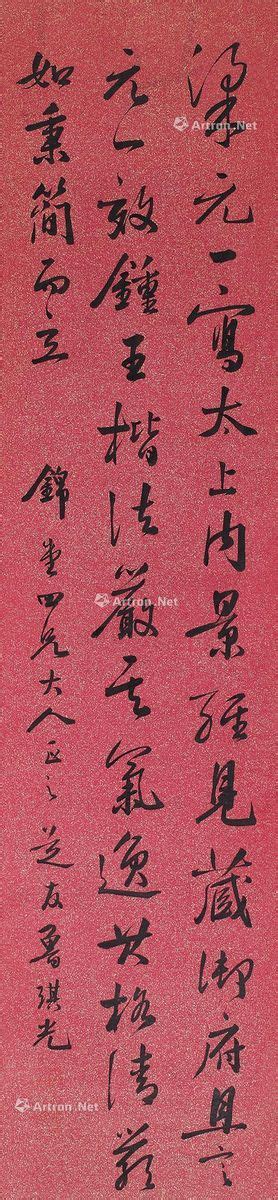 梁元一寫太上內景經見藏御府且言
元一效鍾王楷法嚴其氣逸其格清
如秉簡而立 錦堂四兄大人正之 芝友魯琪光
Artron.Net
Artron.Net
Artron.Net